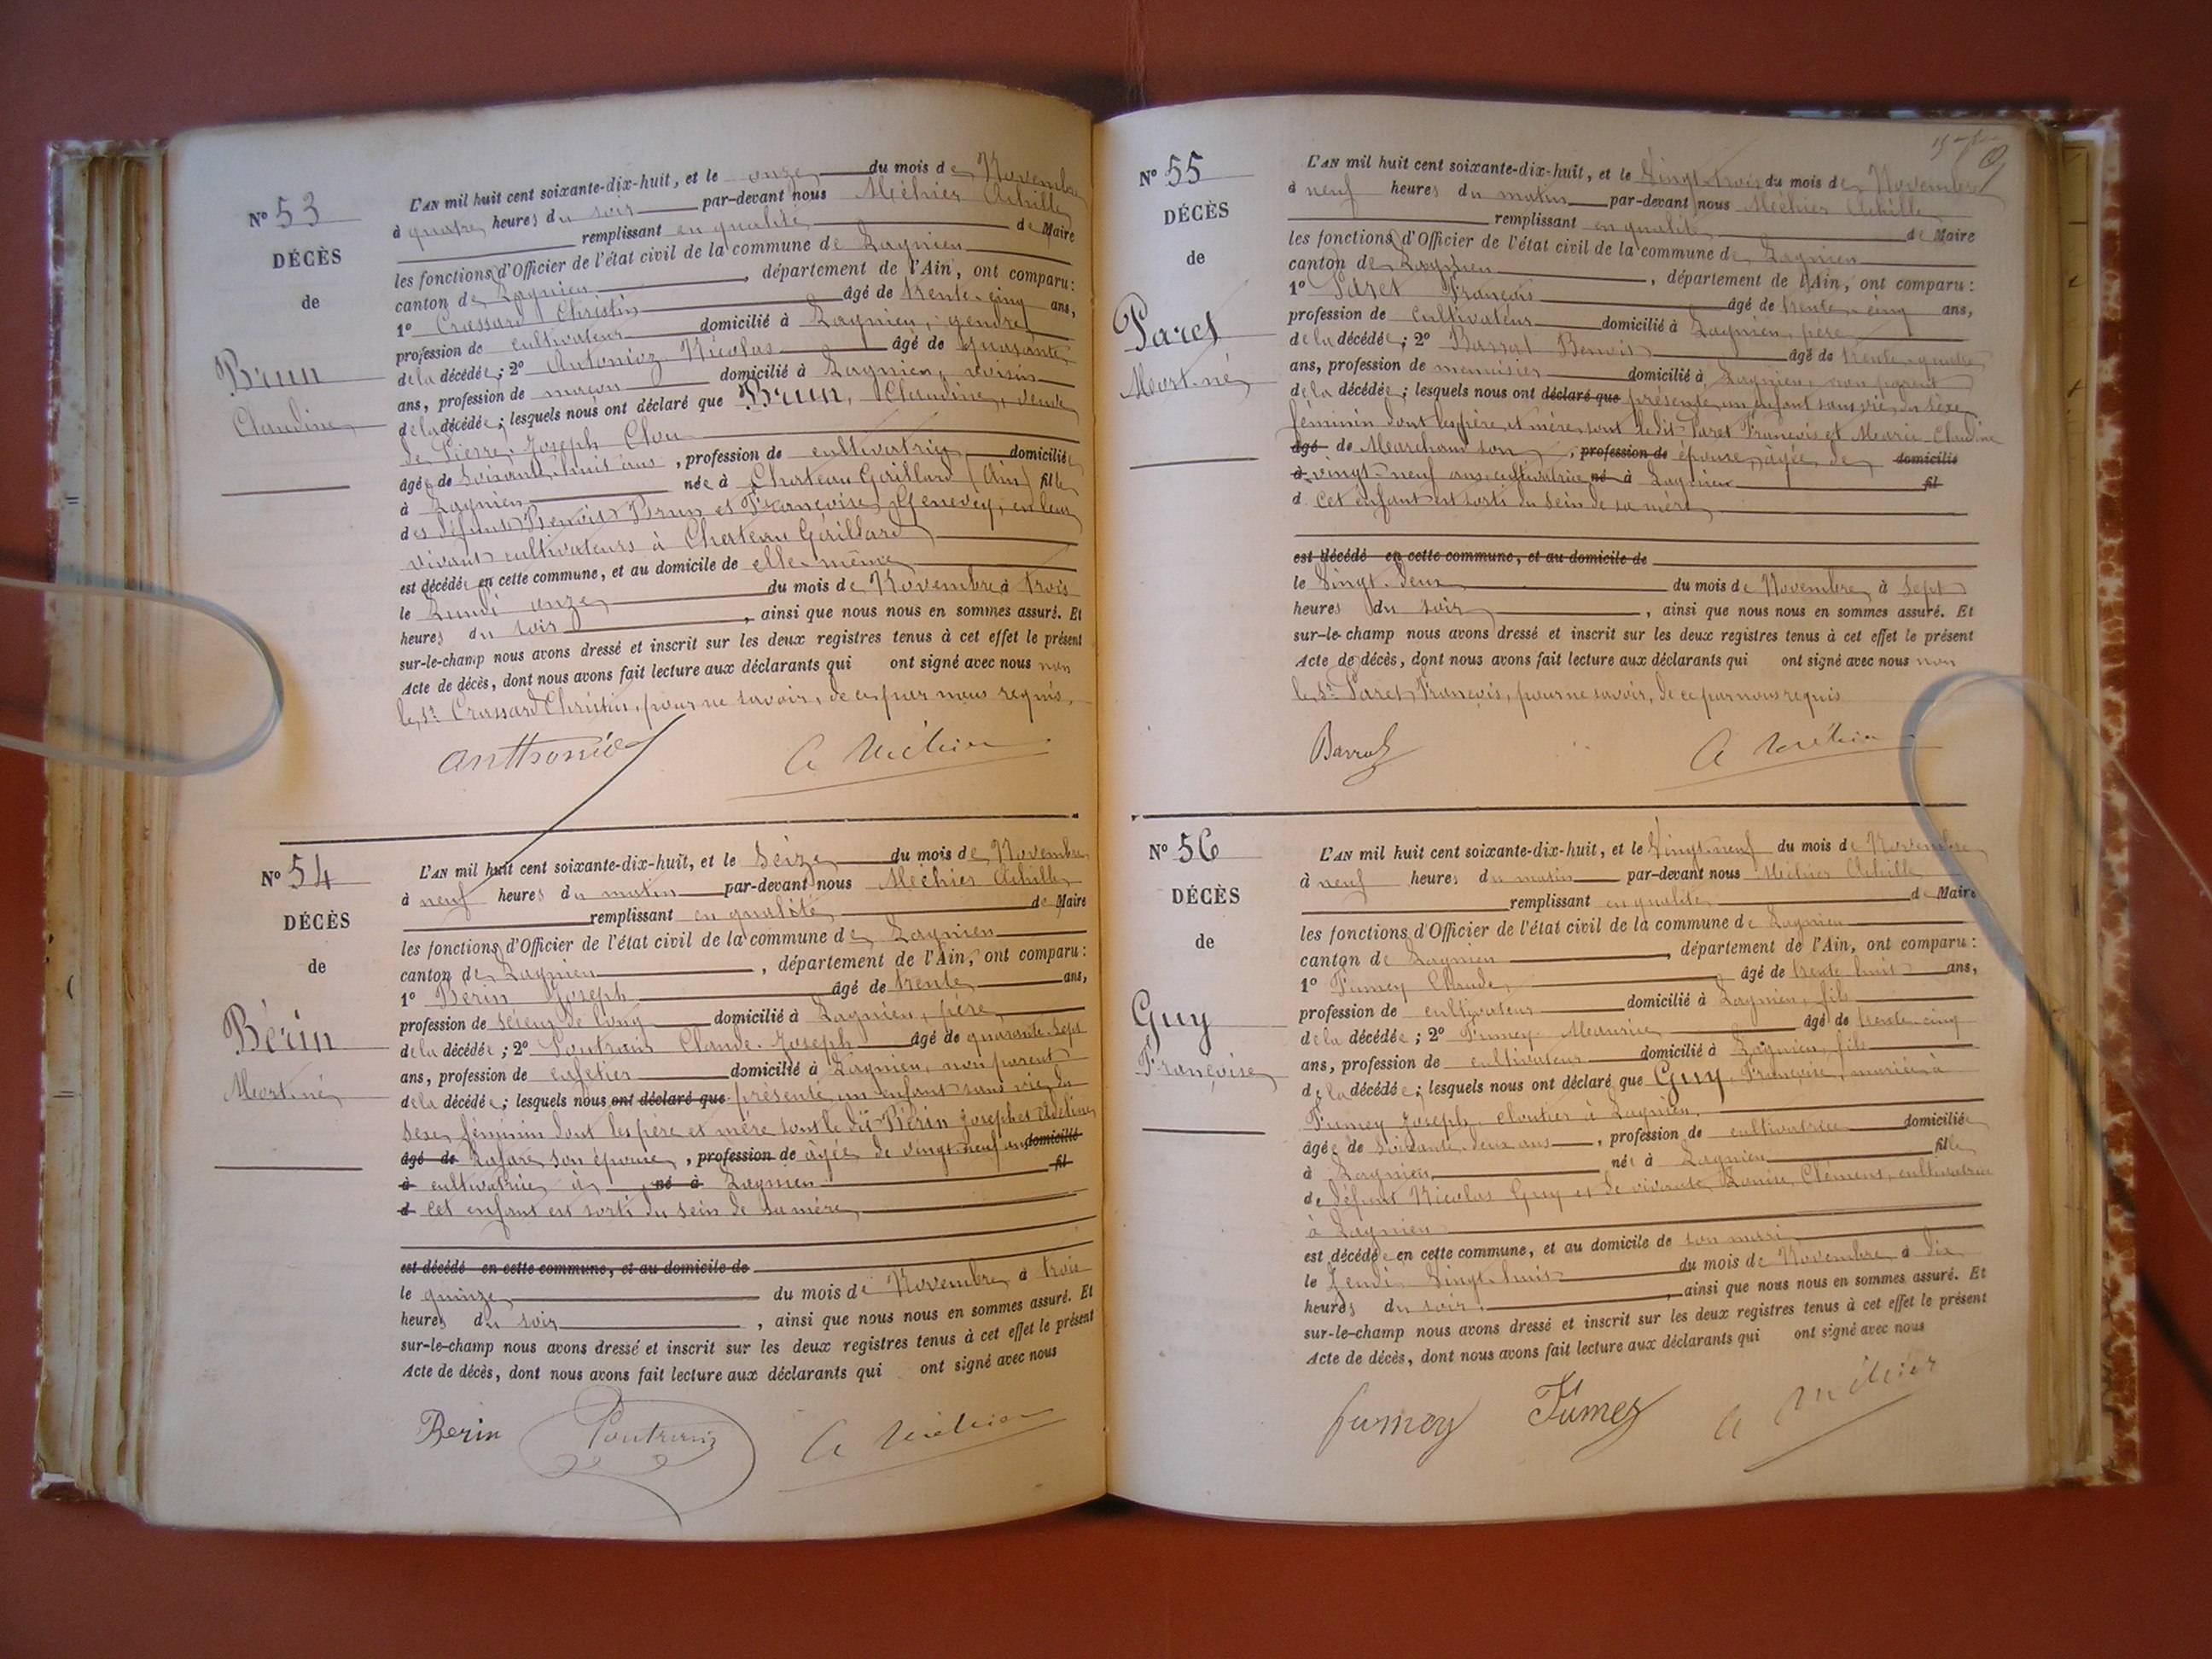 N° 53
DÉCÈS
de
Brun
Claudine
L'AN mil huit cent soixante-dix-huit, et le onze du mois de Novembre
à quatre heures du soir par-devant nous Méhier Achille
remplissant en qualité de Maire
les fonctions d'Officier de l'état civil de la commune de Lagnieu
canton de Lagnieu, département de l'Ain, ont comparu :
1° Crassard Christin âgé de trente-cinq ans,
profession de cultivateur domicilié à Lagnieu, gendre
de la décédée ; 2° Antonioz Nicolas âgé de quarante
ans, profession de maçon domicilié à Lagnieu, voisin
de la décédée ; lesquels nous ont déclaré que Brun, Claudine, veuve
de Pierre-Joseph Clou
âgée de soixante-huit ans, profession de cultivatrice domiciliée
à Lagnieu née à Chateau Gaillard (Ain) fille
des défunts Benoit Brun et Françoise Genevey, en leur
vivant cultivateurs à Chateau Gaillard
est décédée en cette commune, et au domicile de elle-même
le Lundi onze du mois de Novembre à trois
heures du soir, ainsi que nous nous en sommes assuré. Et
sur-le-champ nous avons dressé et inscrit sur les deux registres tenus à cet effet le présent
Acte de décès, dont nous avons fait lecture aux déclarants qui ont signé avec nous non
le sr Crassard Christin, pour ne savoir, de ce par nous requis.
A Méhier
N° 54
DÉCÈS
de
Bérin
Mort-né
L'AN mil huit cent soixante-dix-huit, et le Seize du mois de Novembre
à neuf heures du matin par-devant nous Méhier Achille
remplissant en qualité de Maire
les fonctions d'Officier de l'état civil de la commune de Lagnieu
canton de Lagnieu, département de l'Ain, ont comparu :
1° Bérin Joseph âgé de trente ans,
profession de scieur de long domicilié à Lagnieu, père
de la décédée ; 2° Poutrain Claude-Joseph âgé de quarante-sept
ans, profession de cafetier domicilié à Lagnieu, non parent
de la décédée ; lesquels nous ont déclaré que présenté un enfant sans vie, du
sexe féminin dont les père et mère sont le dit Bérin Joseph et Adeline
âgé de son épouse, profession de agée de vingt-neuf ans domicilié
à cultivatrice à né à Lagnieu fil
d cet enfant est sorti du sein de sa mère
est décédé en cette commune, et au domicile de
le quinze du mois de Novembre à trois
heures du soir, ainsi que nous nous en sommes assuré. Et
sur-le-champ nous avons dressé et inscrit sur les deux registres tenus à cet effet le présent
Acte de décès, dont nous avons fait lecture aux déclarants qui ont signé avec nous
Berin Poutrain A Méhier
N° 55
DÉCÈS
de
Paret
Mort-né
L'AN mil huit cent soixante-dix-huit, et le Vingt-trois du mois de Novembre
à neuf heures du matin par-devant nous Méhier Achille
remplissant en qualité de Maire
les fonctions d'Officier de l'état civil de la commune de Lagnieu
canton de Lagnieu, département de l'Ain, ont comparu :
1° Paret François âgé de trente-cinq ans,
profession de cultivateur domicilié à Lagnieu, père
de la décédée ; 2° Barral Benoit âgé de trente-quatre
ans, profession de menuisier domicilié à Lagnieu, non parent
de la décédée ; lesquels nous ont déclaré que présenté un enfant sans vie, du sexe
féminin dont les père et mère sont le dit Paret François et Marie-Claudine
âgé de Marchand son, profession de épouse, agée de domicilié
à vingt-neuf ans cultivatrice né à Lagnieu fil
d cet enfant est sorti du sein de sa mère
est décédé en cette commune, et au domicile de
le Vingt-deux du mois de Novembre à sept
heures du soir, ainsi que nous nous en sommes assuré. Et
sur-le-champ nous avons dressé et inscrit sur les deux registres tenus à cet effet le présent
Acte de décès, dont nous avons fait lecture aux déclarants qui ont signé avec nous non
le sr Paret François, pour ne savoir, de ce par nous requis
Barral A Méhier
N° 56
DÉCÈS
de
Guy
Françoise
L'AN mil huit cent soixante-dix-huit, et le Vingt-neuf du mois de Novembre
à neuf heures du matin par-devant nous Méhier Achille
remplissant en qualité de Maire
les fonctions d'Officier de l'état civil de la commune de Lagnieu
canton de Lagnieu, département de l'Ain, ont comparu :
1° Fumey Claude, âgé de trente-huit ans,
profession de cultivateur domicilié à Lagnieu, fils
de la décédée ; 2° Fumey Maurice âgé de trente-cinq
ans, profession de cultivateur domicilié à Lagnieu, fils
de la décédée ; lesquels nous ont déclaré que Guy, Françoise, mariée à
Fumey Joseph, cloutier à Lagnieu,
âgée de soixante-deux ans, profession de cultivatrice domiciliée
à Lagnieu née à Lagnieu fille
de défunt Nicolas Guy et de vivante Louise Clément, cultivatrice
à Lagnieu
est décédée en cette commune, et au domicile de son mari
le Jeudi Vingt-huit du mois de Novembre à dix
heures du soir, ainsi que nous nous en sommes assuré. Et
sur-le-champ nous avons dressé et inscrit sur les deux registres tenus à cet effet le présent
Acte de décès, dont nous avons fait lecture aux déclarants qui ont signé avec nous
fumey Fumey A Méhier